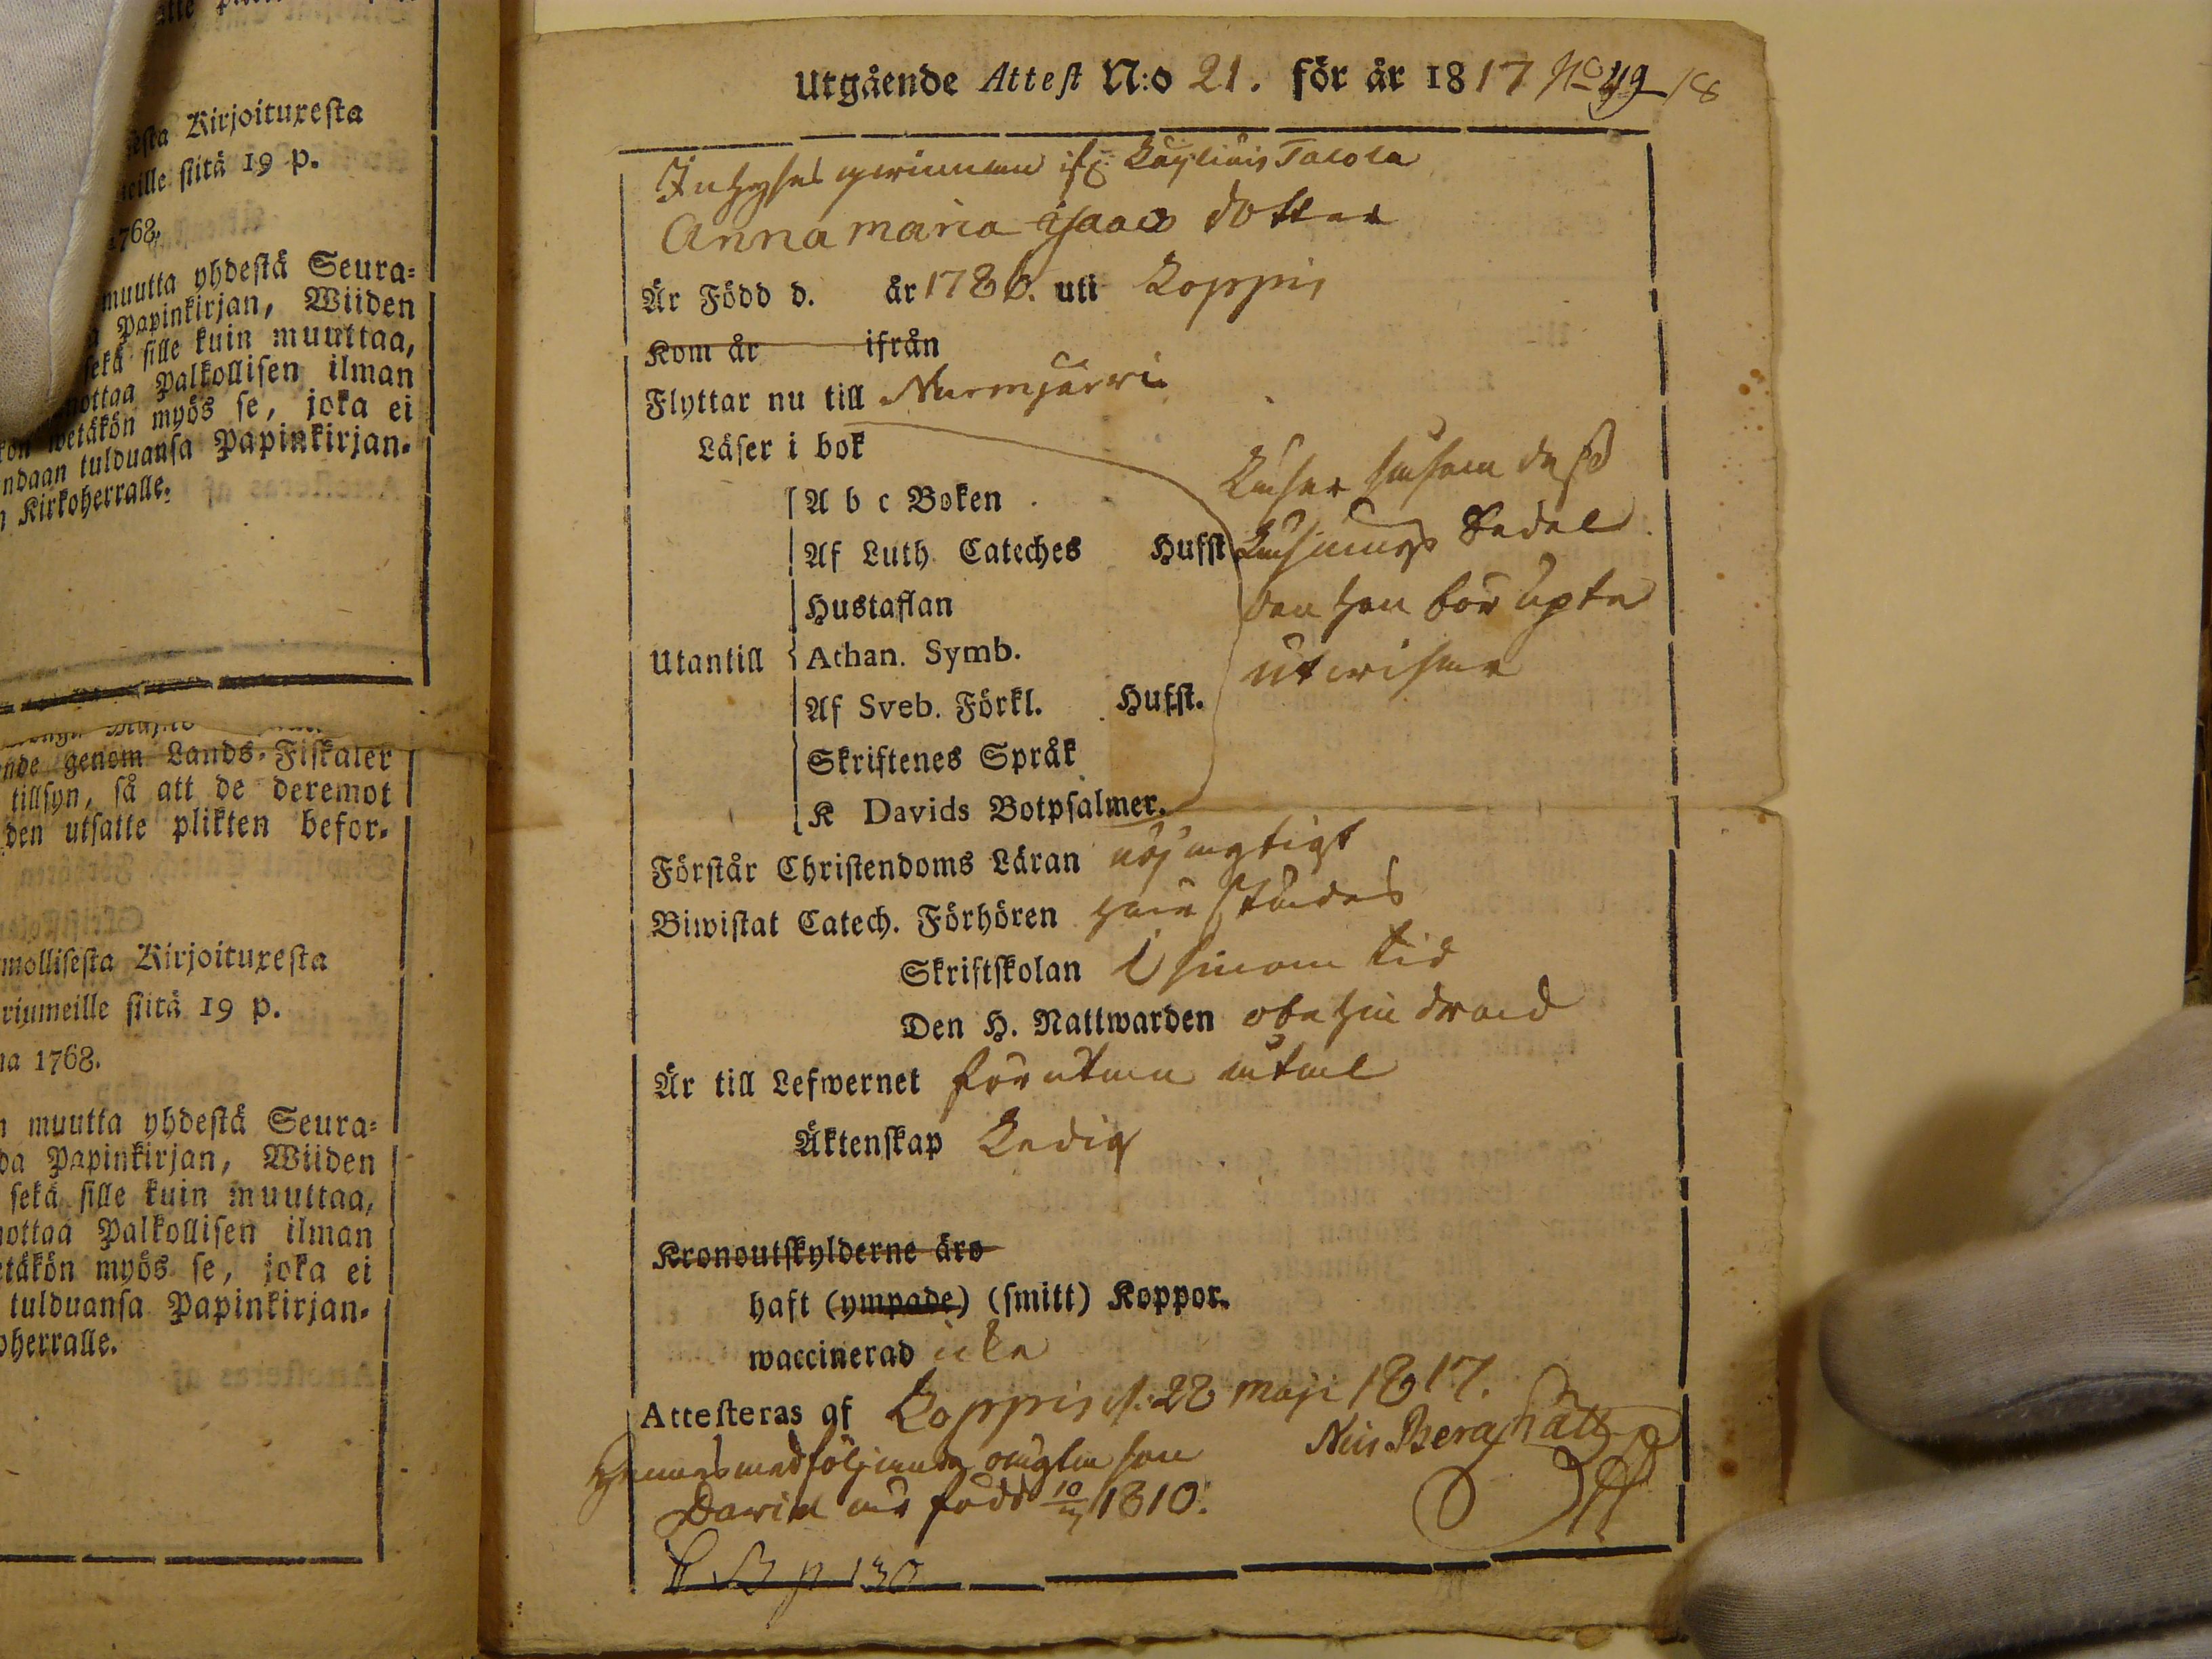 sta Kirjoituxesta
eille siitä 19 p.
1768.
muutta yhdestä Seura-
Papinkirjan, Wiiden
sekä sille kuin muuttaa,
nottaa Palkollisen ilman
kön wetäkön myös se, joka ei
ndaan tulduansa Papinkirjan-
n Kirkoherralle.
nde genom Lands-Fiskaler
tillsyn, så att de deremot
den utsatte plikten befor-
mollisesta Kirjoituxesta
riumeille siitä 19 p.
na 1768.
n muutta yhdestä Seura-
da Papinkirjan, Wiiden
sekä sille kuin muuttaa,
nottaa Palkollisen ilman
etäkön myös se, joka ei
tulduansa Papinkirjan-
oherralle.
Utgående Attest N:o 21. för år 1817 No 49 /18
Inhyses qwinnan
Anna maria Isaacs dotter
Är Född d. år 1786. uti Loppis
Kom år ifrån
Flyttar nu till Nurmijärwi
Läser i bok
A b c Boken
Af Luth. Cateches Hufst
Hustaflan
Utantill Athan. Symb.
Af Sveb. Förkl. Hufst.
Skriftenes Språk
K Davids Botpsalmer.
Läser såsom dess
Läsnings Sedel
den hon bör
utwisar
Förstår Christendoms Läran nöjagtigt
Biwistat Catech. Förhören
Skriftskolan i sinom tid
Den H. Nattwarden obehindrad
Är till Lefwernet förutan åtal
Äktenskap Ledig
Kronoutskylderne äro
haft (ympade) (smitt) Koppor.
waccinerad icke
Attesteras af Loppis d. 28 Maji 1817.
Hennes medföljande oägta son Nils Bergh
David är född 10/ 1810.
p 130